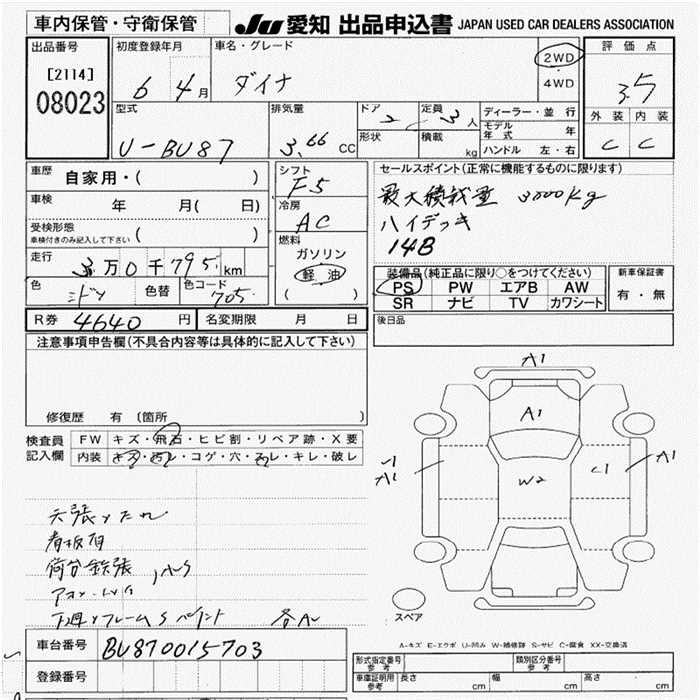 車内保管・守衛保管
JU 愛知 出品申込書 JAPAN USED CAR DEALERS ASSOCIATION
出品番号
[2114]
08023
初度登録年月
6 4月
車名・グレード
ダイナ
2WD
4WD
評価点
3.5
外装 内装
C C
型式
U-BU87
排気量
3.66 CC
ドア
2
形状
定員
3人
積載
kg
ディーラー・並行
モデル年式 年
ハンドル 左・右
車歴 自家用・( )
車検 年 月( 日)
受検形態
車検付きのみ記入して下さい ( )
走行 3万0千795km
色 色替 色コード 705
シフト
F5
冷房
AC
燃料
ガソリン
軽油
( )
セールスポイント(正常に機能するものに限ります)
最大積載量 3000kg
ハイデッキ
14B
装備品(純正品に限り○をつけてください)
PS PW エアB AW
SR ナビ TV カワシート
新車保証書
有・無
R券 4640円 名変期限 月 日
後日品
注意事項申告欄(不具合内容等は具体的に記入して下さい)
修復歴 有 〔箇所 〕
検査員記入欄
FW キズ・飛石・ヒビ割・リペア跡・X要
内装 キズ・汚レ・コゲ・穴・スレ・キレ・破レ
A1
A1
A1
W2
C1
A1
看板有
下廻りフレームSペイント
スペア
A-キズ E-エクボ U-凹み W-補修跡 S-サビ C-腐食 XX-交換済
車台番号 BU870015703
登録番号
形式指定番号 参考
類別区分番号 参考
車庫証明用 参考 長さ cm 幅 cm 高さ cm